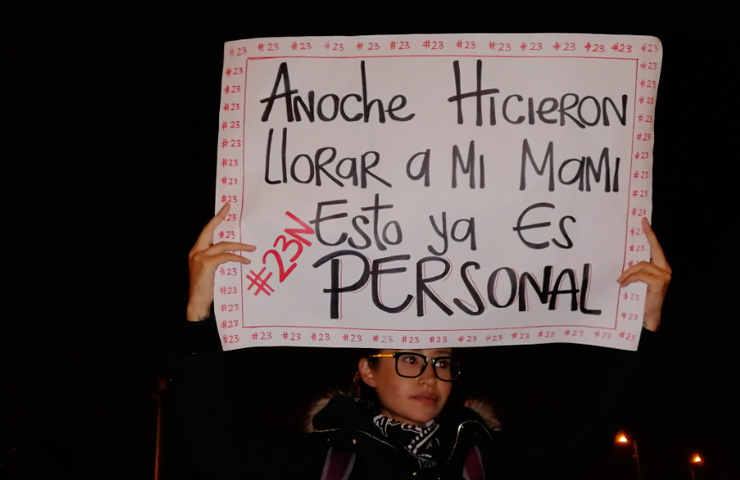 #23 #23 #23 #23 #23 #23 #23 #23 #23 #23 #23 #23 #23
ANOCHE HICIERON
LLORAR A MI MAMI
ESTO YA ES
#23N
PERSONAL
#23 #23 #23 #23 #23 #23 #23 #23 #23 #23 #23 #23 #23 #23 #23